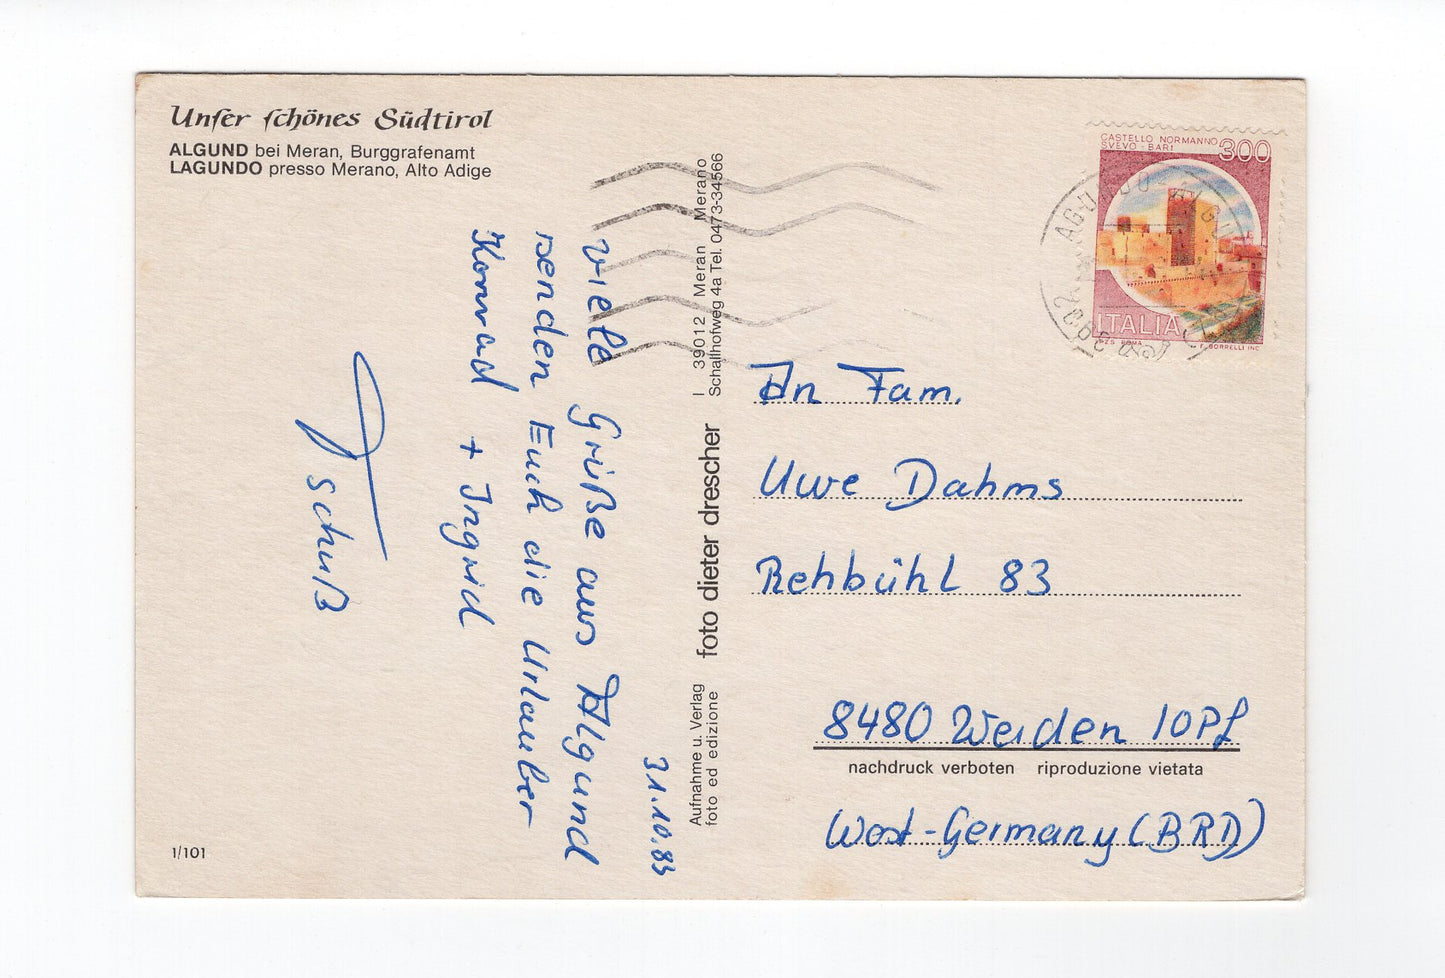 Unser schönes Südtirol
ALGUND bei Meran, Burggrafenamt
LAGUNDO presso Merano, Alto Adige
31.10.83
viele Grüße aus Algund
senden Euch die Urlauber
Konrad + Ingrid
Tschuß
1/101
Aufnahme u. Verlag
foto ed edizione
foto dieter drescher
I 39012 Meran Merano
Schallhofweg 4a Tel. 0473-34566
CASTELLO NORMANNO
SVEVO - BARI
300
ITALIA
I.P.Z.S. ROMA
E. BORRELLI INC.
An Fam.
Uwe Dahms
Rehbühl 83
8480 Weiden /OPf
nachdruck verboten riproduzione vietata
West-Germany (BRD)